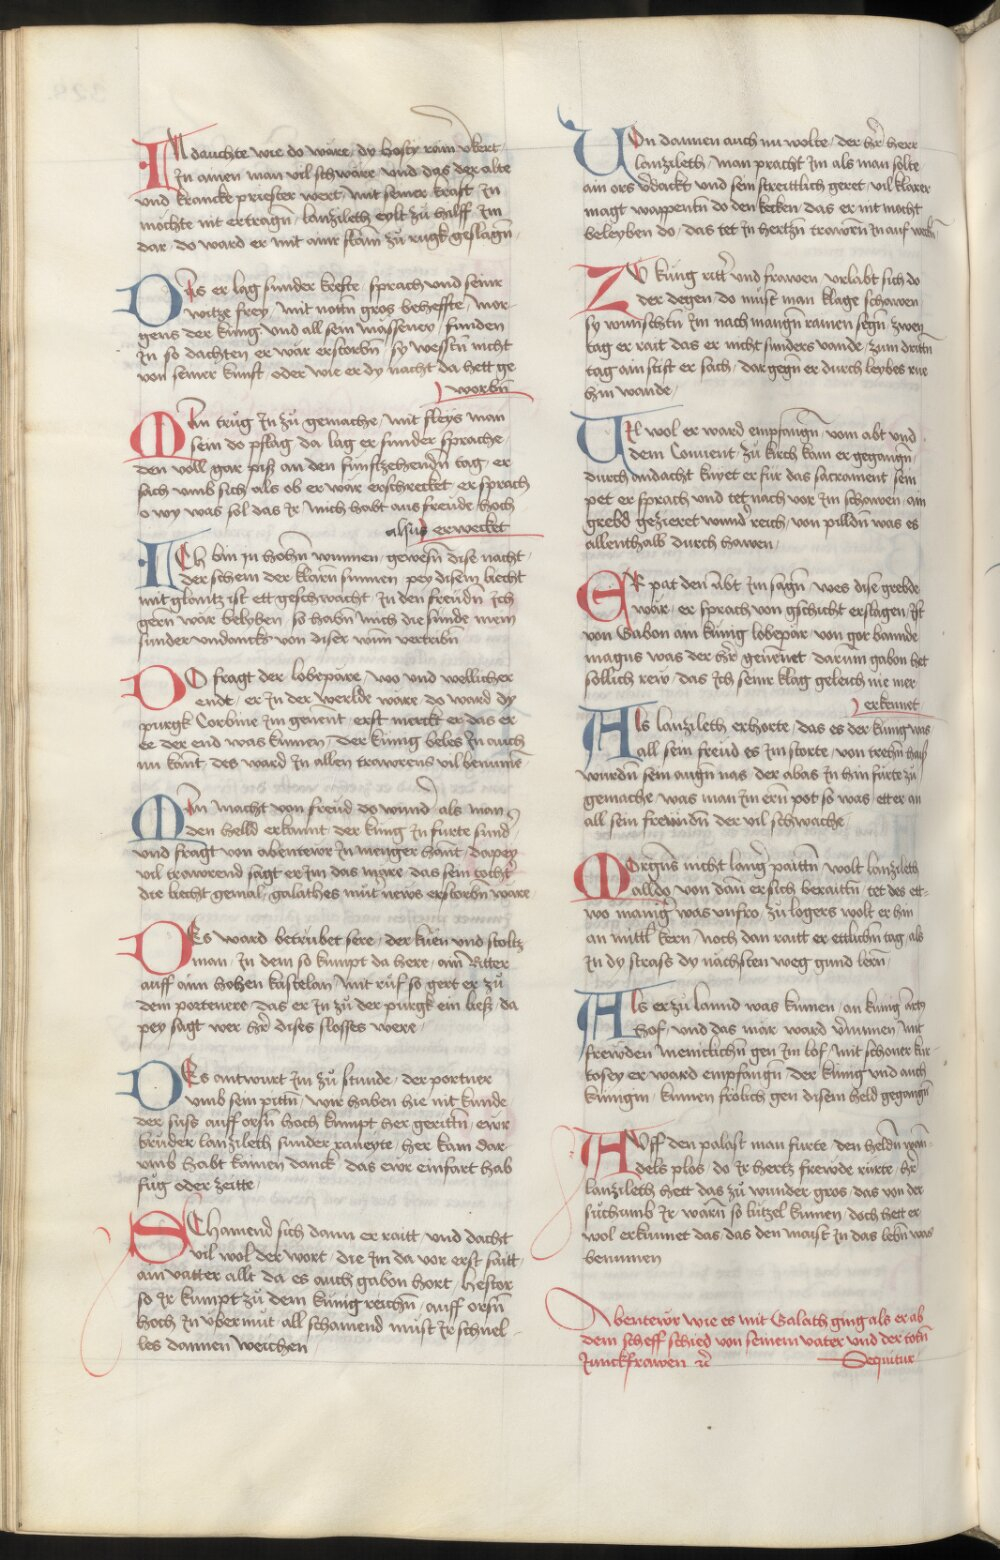 IN dauchte wie do wäre / dy hosty rain v̈bert /
In ainen man vil schwäre / und das der alte
und krancke priester wert / mit seiner krafft In
möchte nit ertragñ / lanzileth eylt zů hilff Im
dar / do ward er mit ainr flam̃ zů rugk geslagñ /
DEs er lag sunder krefte / sprach und seinr
witze frey / mit nöttñ gros beheffte / mor-
gens der küng und all sein masseney / funden
In so dachten er wär erstorbñ / sy westñ nicht
von seiner kunst / oder wie er dy nacht da hett ge
worbñ
MAn trůg In zů gemache / mit fleys man
sein do pflag / da lag er sunder sprache /
den voll gar piß an den funfftzehendñ tag / er
sach umb sich als ob er wär erschrecket / er sprach
o wy was sol das Ir mich habt aus freude hoch
alsus erwecket
ICh bin In hohñ wunnen / gewesñ dise nacht /
der schein der klarñ sunnen / pey disem liecht
mit glantz ist ett geschwacht / In den freudñ Ich
gern wär belyben / so habñ mich die sunde mein
sunder undancks von diser wun̄ vertribñ
DO fragt der lobepäre / wo und wellicher
endt / er In der werlde wäre / do ward dy
purgk Corbine Im genent / erst merckt er das er
ee der end was kumen / der küng beles In auch
nu kant / des ward In allen trawrens vil benumē
MAn macht von freud do wunder als man
den helld erkannt / der küng In furte sund
und fragt von abentewr In menger hant / dapey
vil trawrend sagt er Im das märe / das sein tocht̉
die liecht gemal / galathes můt̉ news erstorbñ wäre
DEs ward betrübet sere / der küen und stoltz
man / In dem so kumpt da here / ain Ritter
auff ainn hohen kastelan / mit růf so gert er zů
dem portenere / das er In zů der purgk ein lieſz / da
pey sagt wer hr̃ dises slosses were /
DEs antwurt Im zů stunde / der portner
umb sein pittñ / wir haben hie nit kunde
der suss auff orsñ hoch kumpt her gerittñ / ewr
brůder lanzileth sunder raneyte / her kam dar-
umb habt kainen danck / das ewr einfart hab
fůg oder zeitte /
SChamend sich dann er raitt / und dacht
vil wol der wort / die Im da vor erst saitt /
ain vatter allt da es auch gabon hort / hestor
so Ir kumpt zů dem küng reichñ / auff orsñ
hoch In ubermüt / all schamend můst Ir schnel-
les dannen weichen
VOn dannen auch nu wolte / der hr̃ herr
lanzileth / man pracht Im als man solte
ain ors v̈dackt und sein streittlich geret / vil klarer
magt wappentñ do den kecken / das er nit mocht
beleyben do / das tet In hertzñ trawrñ
ZU küng ritt̉ und frawen / urlabt sich do
der degen / do můst man klage schawen
sy wunschtñ Im nach mangñ rainen segñ / zwen
tag er rait das er nicht sunders vande / zum drittñ
tag ain stift er sach / dar gegñ er durch leybes rue
hin wande /
VIl wol er ward empfangñ / vom abt und
dem Convent / zů kirch kam er gegangñ
durch andacht knyet er für das sacrament / sein
pet er sprach und tet nach vor Im schawen / ain
grebd gezieret wund̉ reich / von pilldñ was es
allenthalb durch hawen /
ER pat den abt Im sagñ / wes dise grebde
wär / er sprach von gschicht erslagen / Ist
von Gabon ain künig lobepär / von gor bannde
magus was der hr̃ genennet / darum̃ gabon het
sollich rew / das Ich seinr klag geleich nie mer
erkennet
ALs lanzileth erhorte / das es der künig was
all sein freud es Im storte / von trehñ
wurdñ sein augñ nas / der abas In hin fürte zů
gemache / was man Im ern̄ pot so was etter an
all sein frewndñ der vil schwache
MOrgñs nicht lang̉ paittñ / wolt lanzileth
alldo von dan̄ er sich beraittñ / tet des et-
wo manig̉ was unfro / zů logers wolt er hin
an mittl kern / noch dan raitt er ettlichñ tag / als
In dy straß dy nächsten weg gund lern /
ALs er zů lannd was kumen / an künig
hof / und das mär ward v̈numen / mit
frewden menicklichñ gen Im lof / mit schoner kur-
tosey er ward empfangñ / der künig und auch
künigin / kumen frölich gen disem held gegangñ
AUff den palast man fürte / den heldñ wan-
dels plos / do Ir hertz frewde rürte / hr̃
lanzileth hett das zů wunder gros / das von der
sůch umb Ir warñ so lützel kumen / doch hett er
wol erkunnet das / das den maist In das lebñ was
benummen
Abentewr wie es mit Galath ging als er ab
dem scheff schied von seinem vater und der totñ
Junckfrawen ꝛc̃ Sequitur